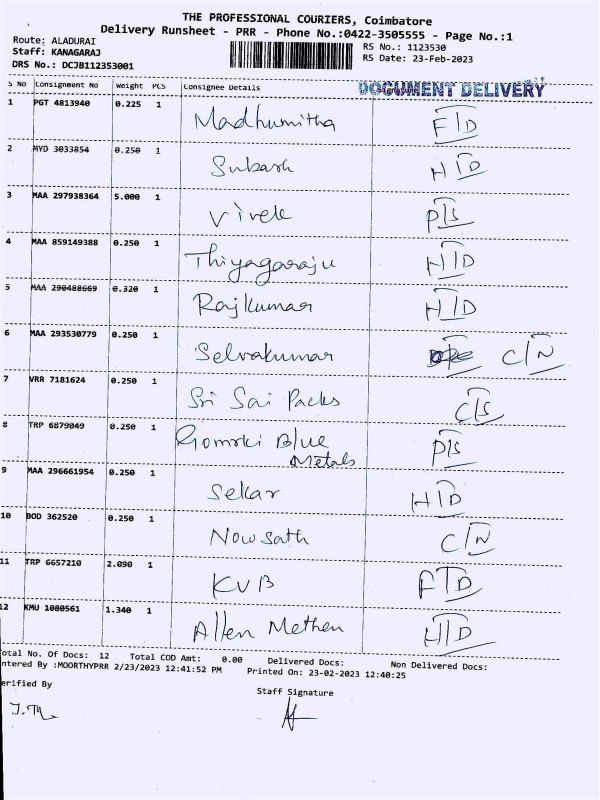 THE PROFESSIONAL COURIERS, Coimbatore
Delivery Runsheet - PRR - Phone No.:0422-3505555 - Page No.:1
Route: ALADURAI
Staff: KANAGARAJ
DRS No.: DCJB112353001
RS No.: 1123530
RS Date: 23-Feb-2023
S No Consignment No Weight PCS Consignee Details DOCUMENT DELIVERY
1 PGT 4813940 0.225 1 Madhumitha F/D
2 MYD 3033854 0.250 1 Subash H/D
3 MAA 297938364 5.000 1 Vivek P/S
4 MAA 859149388 0.250 1 Thiyagaraju H/D
5 MAA 290488669 0.320 1 Rajkumar H/D
6 MAA 293530779 0.250 1 Selvakumar C/N
7 VRR 7181624 0.250 1 Sri Sai Packs C/S
8 TRP 6879049 0.250 1 Blue P/S
Metals
9 MAA 296661954 0.250 1 Sekar H/D
10 BOD 362520 0.250 1 Nowsath C/N
11 TRP 6657210 2.090 1 KVB F/D
12 KMU 1080561 1.340 1 Allen Methen H/D
otal No. Of Docs: 12 Total COD Amt: 0.00 Delivered Docs: Non Delivered Docs:
ntered By :MOORTHYPRR 2/23/2023 12:41:52 PM Printed On: 23-02-2023 12:40:25
erified By
Staff Signature